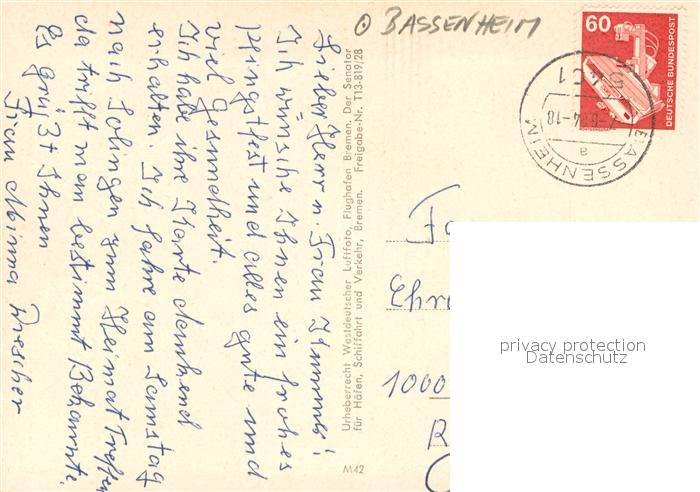 BASSENHEIM
60
DEUTSCHE BUNDESPOST
5451
-6.84-18
BASSENHEIM
a
Lieber Herr u. Frau Timmes!
Ich wünsche Ihnen ein frohes
Pfingstfest und alles gute und
viel Gesundheit.
Ich habe ihre Karte dankend
erhalten. Ich fahre am Samstag
nach Solingen zum Heimat Treffen
da trifft man bestimmt Bekannte.
Es grüßt Ihnen
Frau Minna
Urheberrecht Westdeutscher Luftfoto, Flughafen Bremen. Der Senator
für Häfen, Schiffahrt und Verkehr, Bremen. Freigabe-Nr. T13-819/28
M42
Fa
Ehr
1000
R
privacy protection
Datenschutz